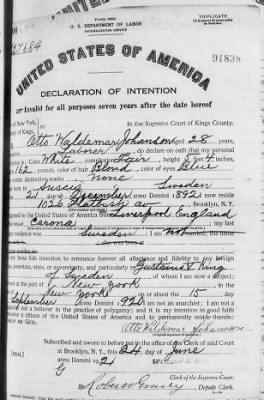 TRIPLICATE
U. S. DEPARTMENT OF LABOR
NATURALIZATION SERVICE
91838
UNITED STATES OF AMERICA
DECLARATION OF INTENTION
Invalid for all purposes seven years after the date hereof
of New York, In the Supreme Court of Kings County.
of Kings,
Otto Waldemar Johanson, aged 28 years,
Laborer, do declare on oath that my personal
is: Color White, complexion Fair, height 5 feet 4 inches,
162 pounds, color of hair Blond, color of eyes Blue
visible distinctive marks None
Sweden
21 day of December, anno Domini 1892; now reside
1026 Flatbush av, Brooklyn, N.Y.
to the United States of America from Liverpool England
Caronia; my last
residence was Sweden I am not
my bona fide intention to renounce forever all allegiance and fidelity to any foreign
potentate, state, or sovereignty, and particularly to Gustavus V King
of Sweden, of whom I am now a subject;
at the port of New York, in the
New York, on or about the 15 day
September, anno Domini 1920; I am not an anarchist; I am not a
nor a believer in the practice of polygamy; and it is my intention in good faith
citizen of the United States of America and to permanently reside therein:
HELP ME GOD.
Otto Valdemar Johanson
Subscribed and sworn to before me in the office of the Clerk of said Court
at Brooklyn, N.Y., this 24 day of June
anno Domini 1921
[SEAL]
G
Clerk of the Supreme Court.
By Deputy Clerk.